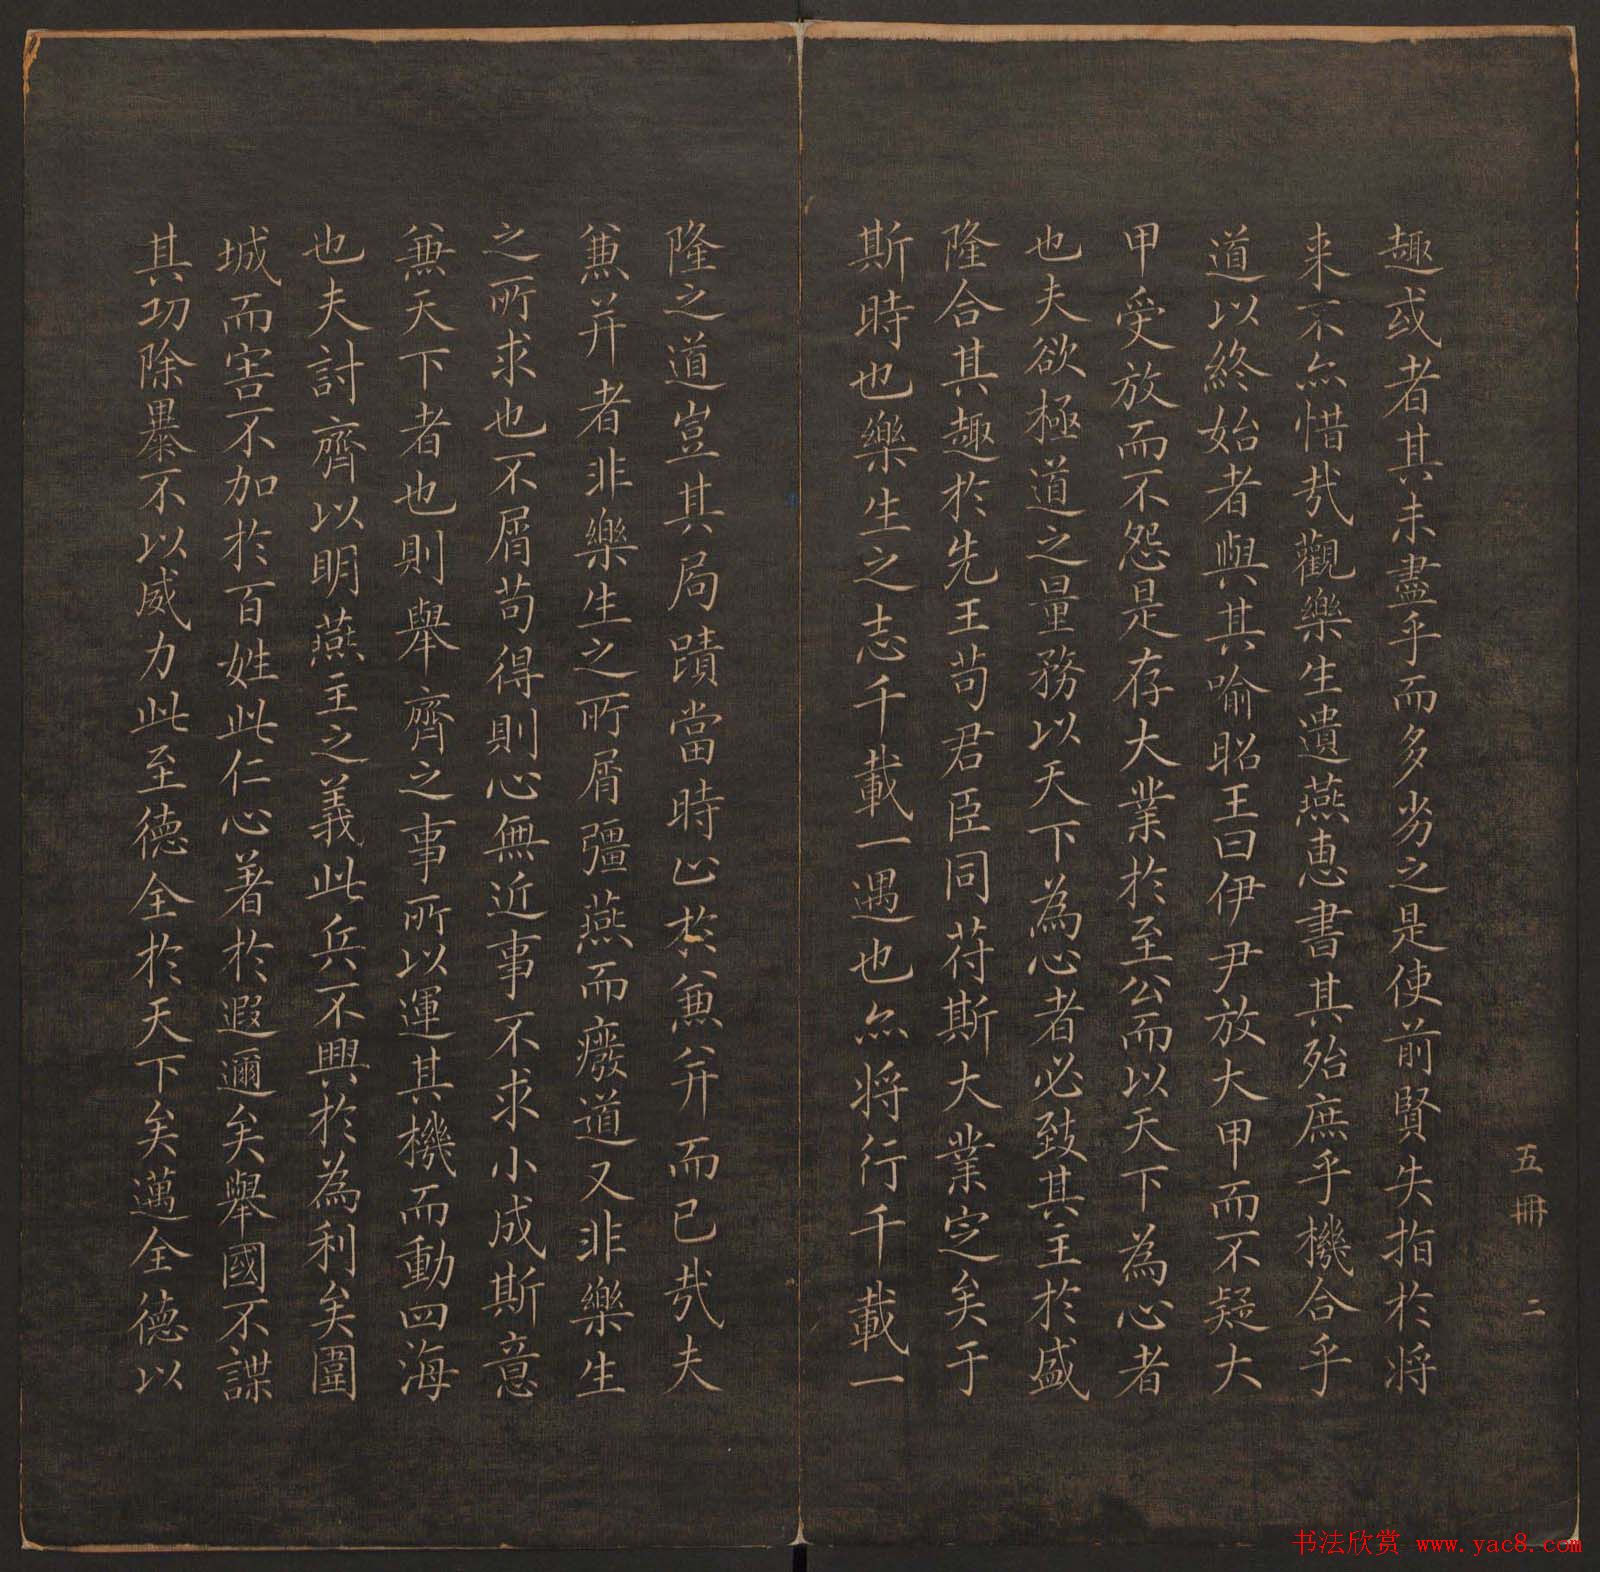 趣或者其未盡乎而多劣之是使前賢失指於將
来不亦惜哉觀樂生遺燕惠書其殆庶乎機合乎
道以終始者與其喻昭王曰伊尹放大甲而不疑大
甲受放而不怨是存大業於至公而以天下為心者
也夫欲極道之量務以天下為心者必致其主於盛
隆合其趣於先王苟君臣同苻斯大業定矣于
斯時也樂生之志千載一遇也亦將行千載一
隆之道豈其局蹟當時止於兼并而已哉夫
兼并者非樂生之所屑彊燕而癈道又非樂生
之所求也不屑苟得則心無近事不求小成斯意
兼天下者也則舉齊之事所以運其機而動四海
也夫討齊以明燕主之義此兵不興於為利矣圍
城而害不加於百姓此仁心著於遐邇矣舉國不謀
其功除暴不以威力此至德全於天下矣邁全德以
五冊 二
书法欣赏 www.yac8.com